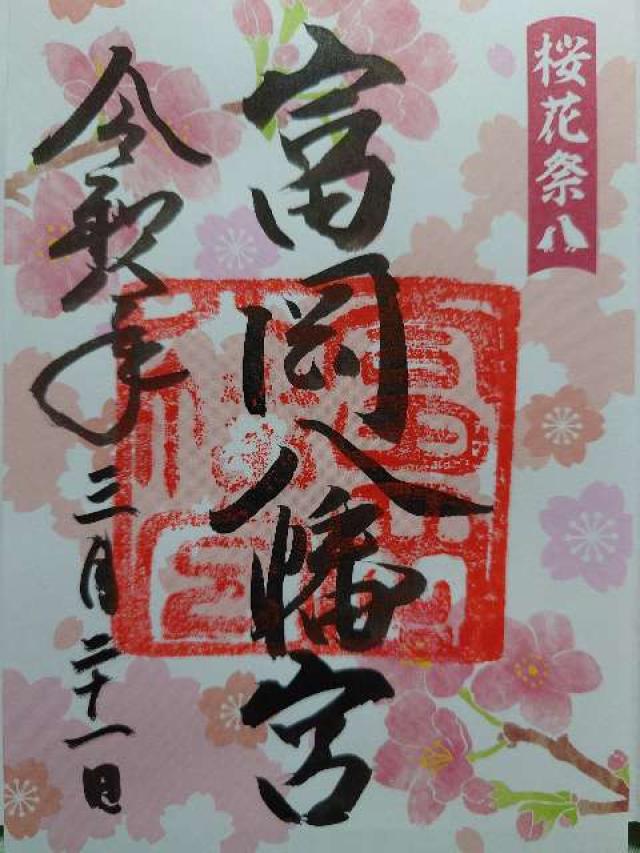 桜花祭
富岡八幡宮
令和年三月二十一日